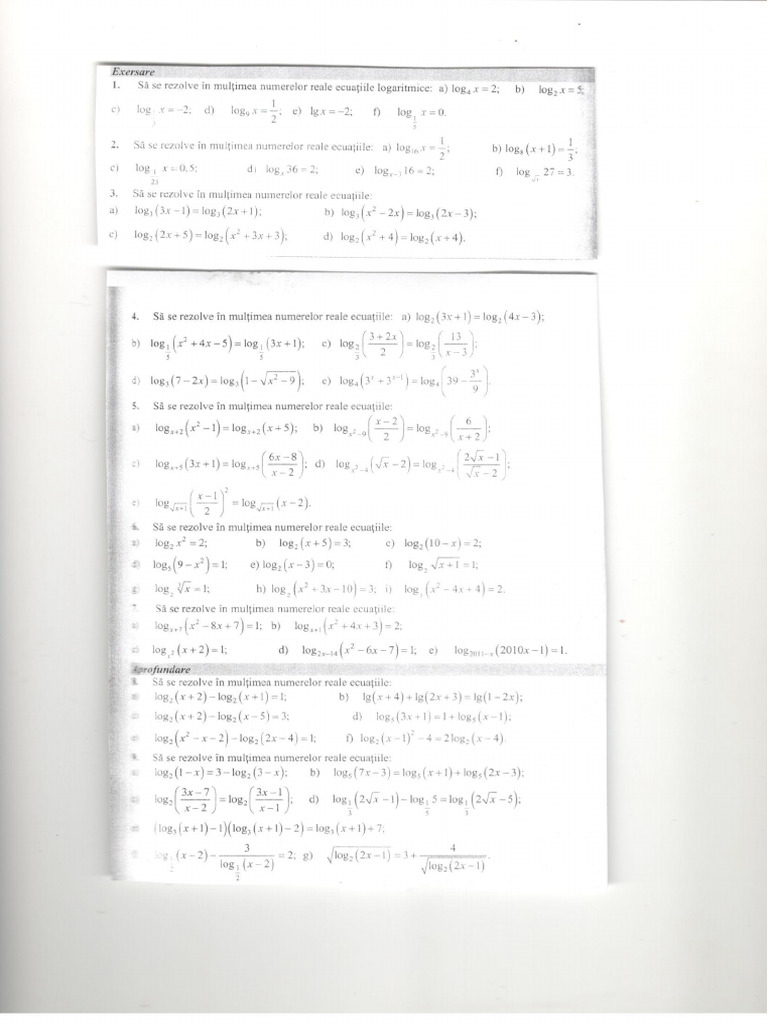 Exersare
1. Să se rezolve în mulțimea numerelor reale ecuațiile logaritmice: a) log₄ x = 2; b) log₂ x = 5;
c) log x = −2; d) log₉ x = 1/2; e) lg x = −2; f) log x = 0.
2. Să se rezolve în mulțimea numerelor reale ecuațiile: a) log₁₆ x = 1/2; b) log₈ (x + 1) = 1/3;
c) log x = 0,5; d) logₓ 36 = 2; e) log 16 = 2; f) log 27 = 3.
3. Să se rezolve în mulțimea numerelor reale ecuațiile:
a) log₃ (3x − 1) = log₃ (2x + 1); b) log₃ (x² − 2x) = log₃ (2x − 3);
c) log₂ (2x + 5) = log₂ (x² + 3x + 3); d) log₂ (x² + 4) = log₂ (x + 4).
4. Să se rezolve în mulțimea numerelor reale ecuațiile: a) log₂ (3x + 1) = log₂ (4x − 3);
b) log_(1/5) (x² + 4x − 5) = log_(1/5) (3x + 1); c) log_(2/3) ((3 + 2x)/2) = log_(2/3) (13/(x − 3));
d) log₃ (7 − 2x) = log₃ (1 − √(x² − 9)); e) log₄ (3ˣ + 3ˣ⁻¹) = log₄ (39 − 3ˣ/9).
5. Să se rezolve în mulțimea numerelor reale ecuațiile:
a) logₓ₊₂ (x² − 1) = logₓ₊₂ (x + 5); b) log_(x²−9) ((x − 2)/2) = log_(x²−9) (6/(x + 2));
c) logₓ₊₅ (3x + 1) = logₓ₊₅ ((6x − 8)/(x − 2)); d) log_(x²−4) (√x − 2) = log_(x²−4) ((2√x − 1)/(√x − 2));
e) log_√(x+1) ((x − 1)/2)² = log_√(x+1) (x − 2).
6. Să se rezolve în mulțimea numerelor reale ecuațiile:
a) log₂ x² = 2; b) log₂ (x + 5) = 3; c) log₂ (10 − x) = 2;
d) log₅ (9 − x²) = 1; e) log₂ (x − 3) = 0; f) log₂ √(x + 1) = 1;
g) log₂ ∛x = 1; h) log₂ (x² + 3x − 10) = 3; i) log (x² − 4x + 4) = 2.
7. Să se rezolve în mulțimea numerelor reale ecuațiile:
a) logₓ₊₇ (x² − 8x + 7) = 1; b) logₓ₊₁ (x² + 4x + 3) = 2;
c) log_(x²) (x + 2) = 1; d) log₂ₓ₋₁₄ (x² − 6x − 7) = 1; e) log₂₀₁₁₋ₓ (2010x − 1) = 1.
Aprofundare
8. Să se rezolve în mulțimea numerelor reale ecuațiile:
a) log₂ (x + 2) − log₂ (x + 1) = 1; b) lg(x + 4) + lg(2x + 3) = lg(1 − 2x);
c) log₂ (x + 2) − log₂ (x − 5) = 3; d) log₅ (3x + 1) = 1 + log₅ (x − 1);
e) log₂ (x² − x − 2) − log₂ (2x − 4) = 1; f) log₂ (x − 1)² − 4 = 2 log₂ (x − 4).
9. Să se rezolve în mulțimea numerelor reale ecuațiile:
a) log₂ (1 − x) = 3 − log₂ (3 − x); b) log₅ (7x − 3) = log₅ (x + 1) + log₅ (2x − 3);
c) log₂ ((3x − 7)/(x − 2)) = log₂ ((3x − 1)/(x − 1)); d) log_(1/3) (2√x − 1) − log_(1/5) 5 = log_(1/3) (2√x − 5);
e) (log₃ (x + 1) − 1)(log₃ (x + 1) − 2) = log₃ (x + 1) + 7;
f) log (x − 2) − 3/(log_(1/2) (x − 2)) = 2; g) √(log₂ (2x − 1)) = 3 + 4/√(log₂ (2x − 1)).